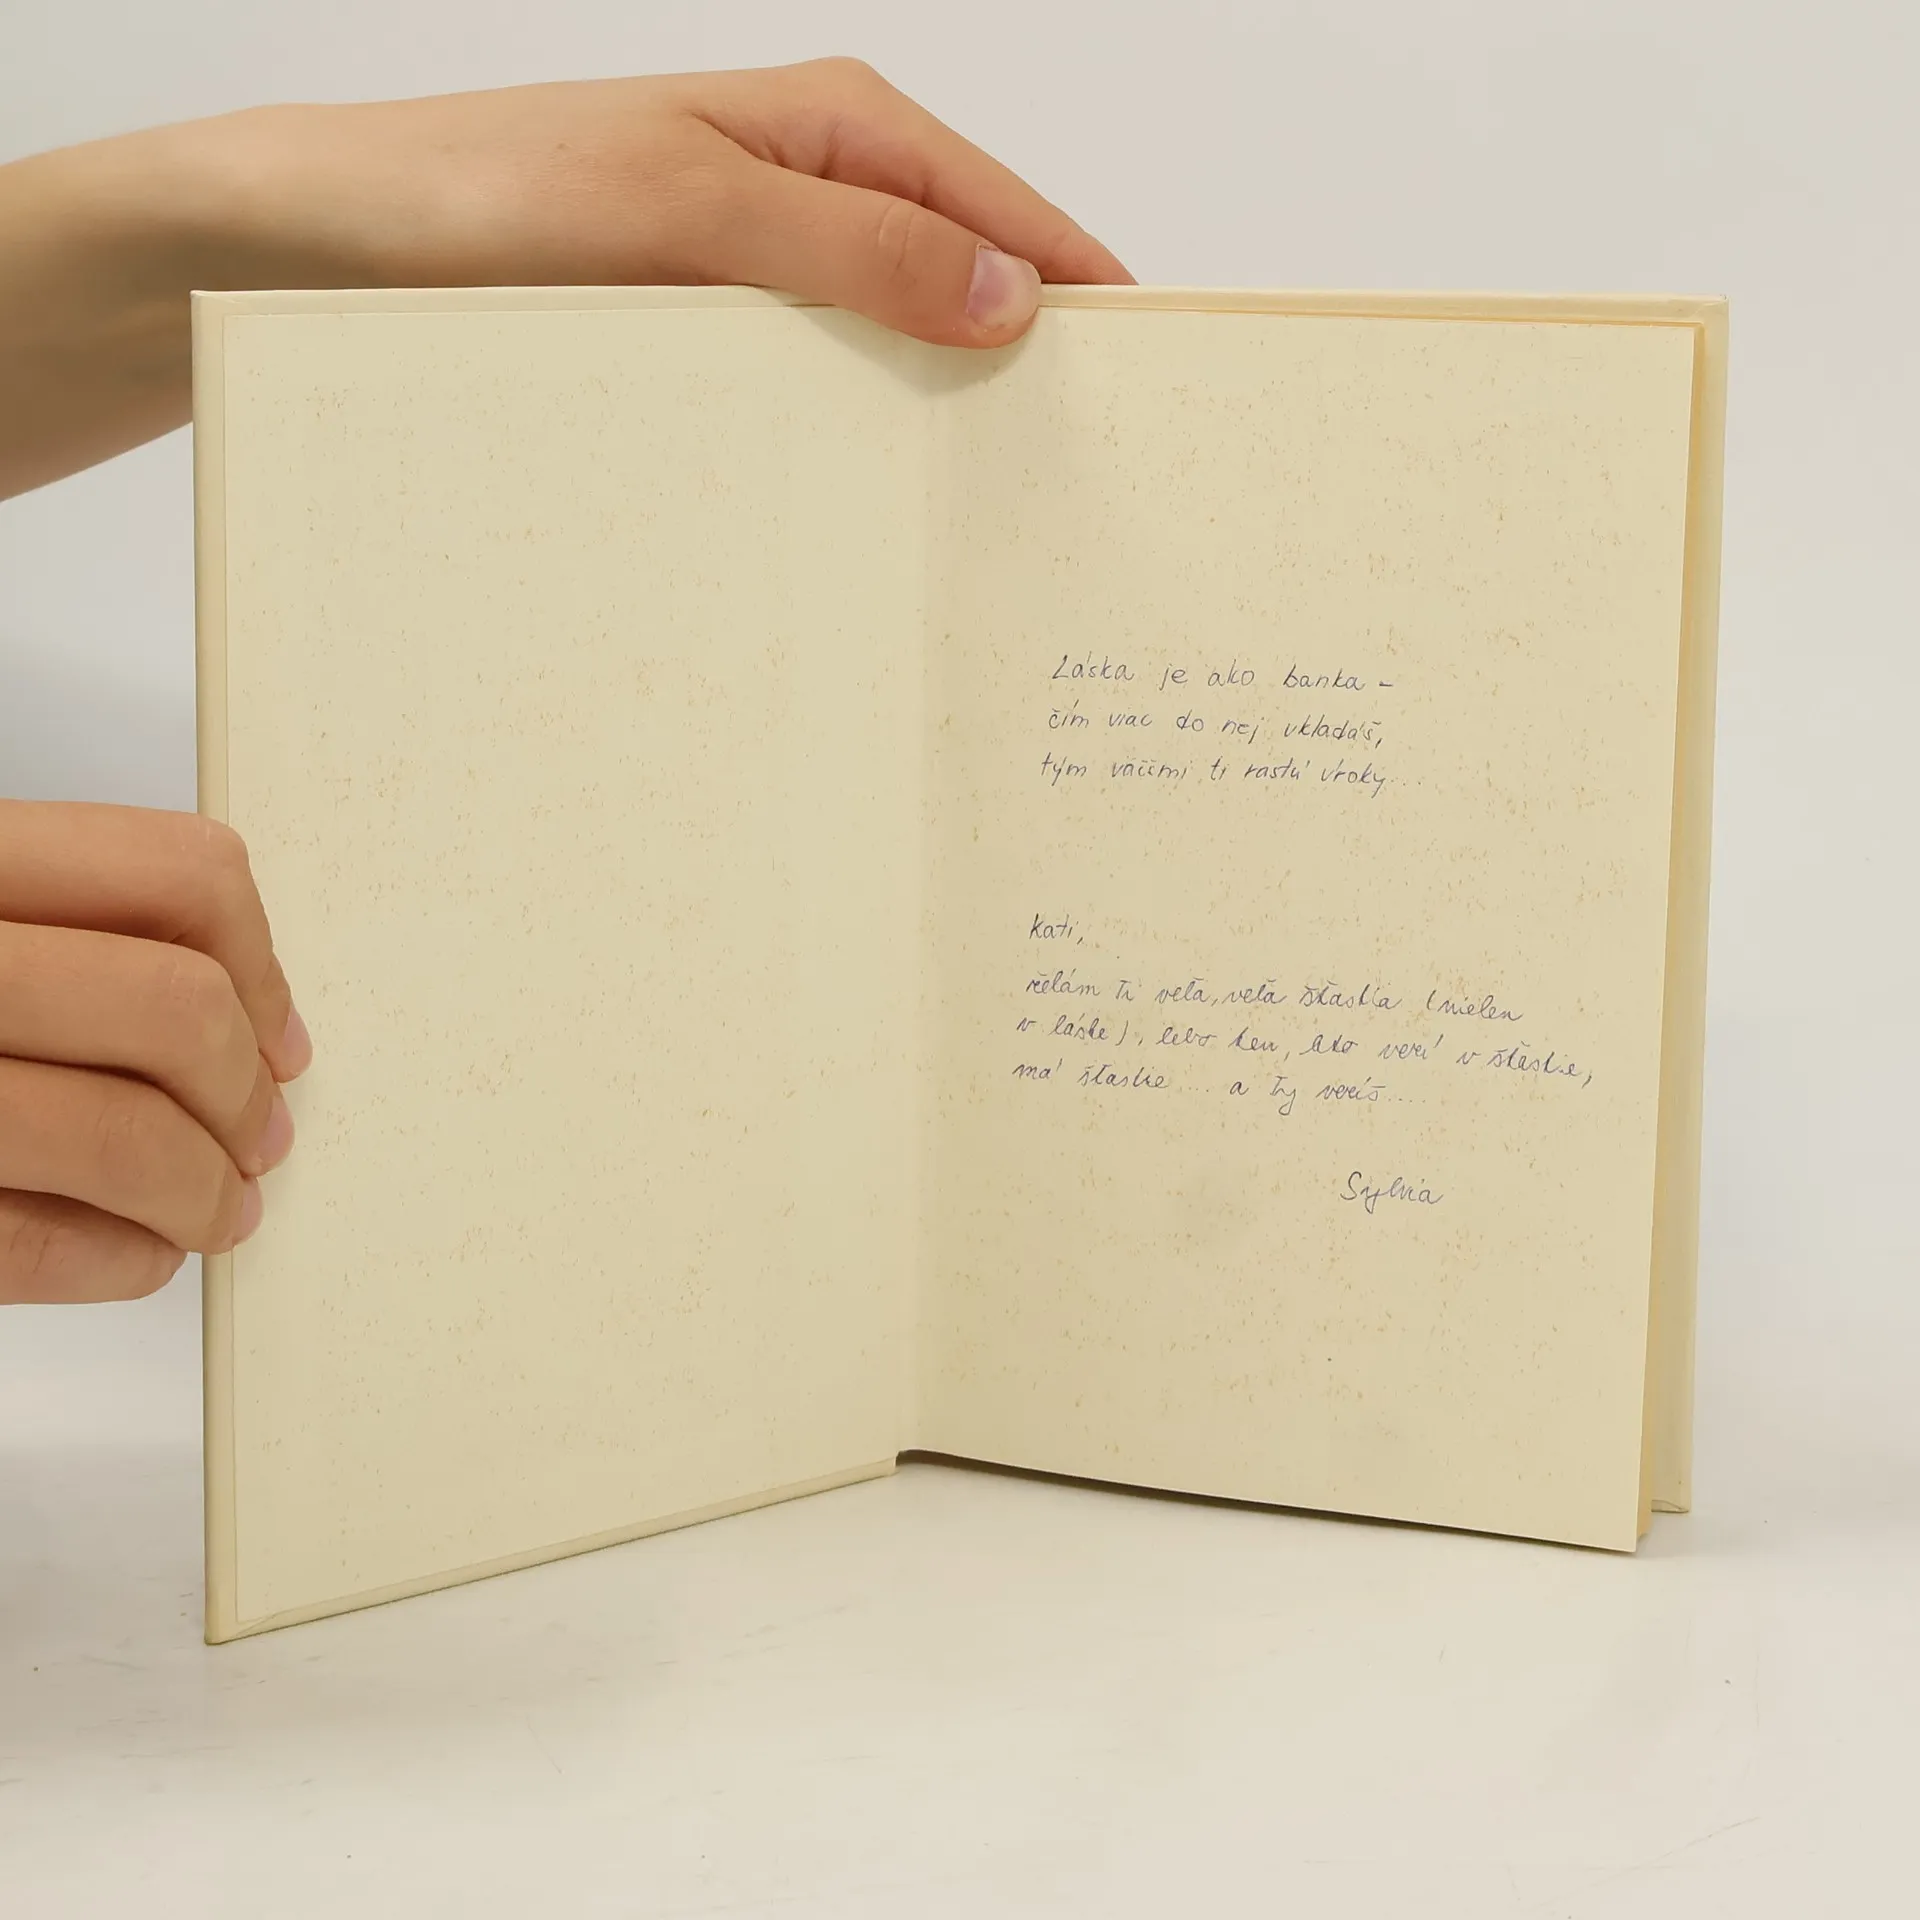 Láska je ako banka -
čím viac do nej vkladáš,
tým väčšmi ti rastú úroky...
Kati,
želám Ti veľa, veľa šťastia (nielen
v láske), lebo ten, kto verí v šťastie,
má šťastie ... a Ty veríš....
Sylvia